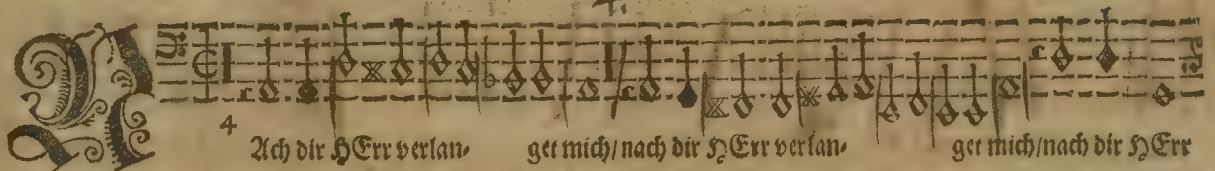 4
NAch dir HErr verlan- get mich/nach dir HErr verlan- get mich/nach dir HErr